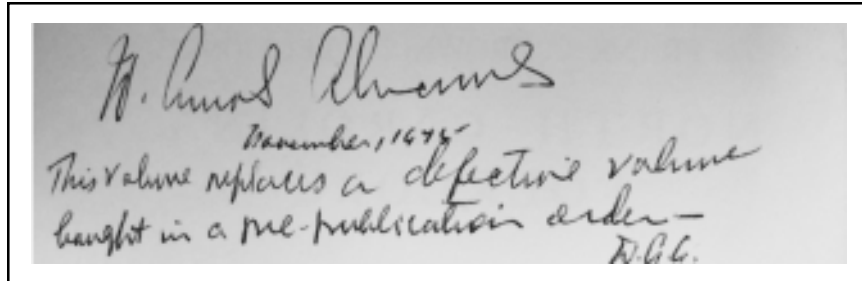 November, 1975
This volume replaces a defective volume
bought in a pre-publication order—